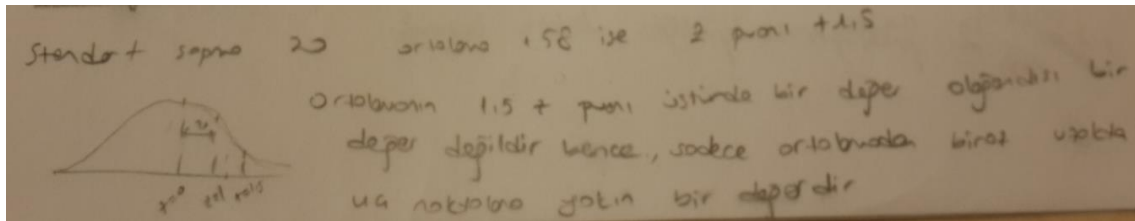 Standart sapma 20 ortalama 58 ise z puanı +1,5
Ortalamanın 1.5 + puanı üstünde bir değer olağandışı bir
değer değildir bence, sadece ortalamadan biraz uzakta
uç noktalara yakın bir değerdir